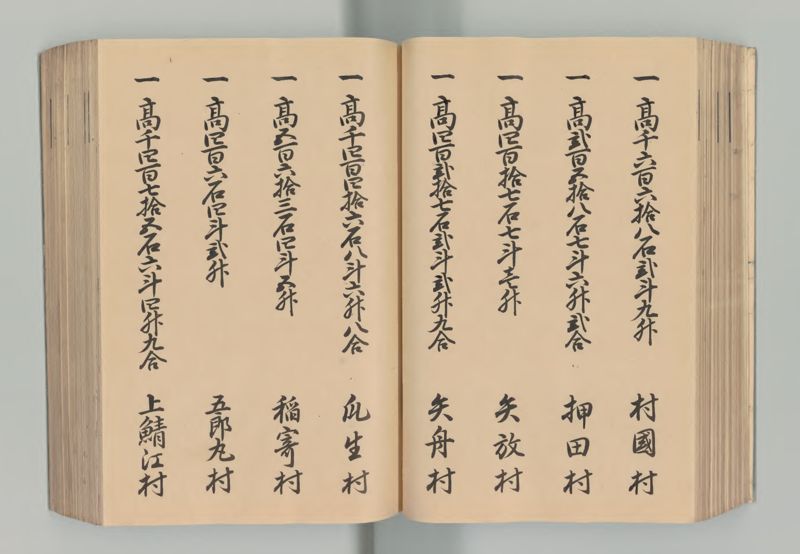 一高千六百六拾八石弐斗九升 村國村
一高弐百五拾八石七斗六升弐合 押田村
一高四百拾七石七斗壱升 矢放村
一高四百弐拾七石弐斗弐升九合 矢舟村
一高千四百四拾六石八斗六升八合 瓜生村
一高五百六拾三石四斗五升 稲寄村
一高四百六石四斗弐升 五郎丸村
一高千四百七拾五石六斗四升九合 上鯖江村